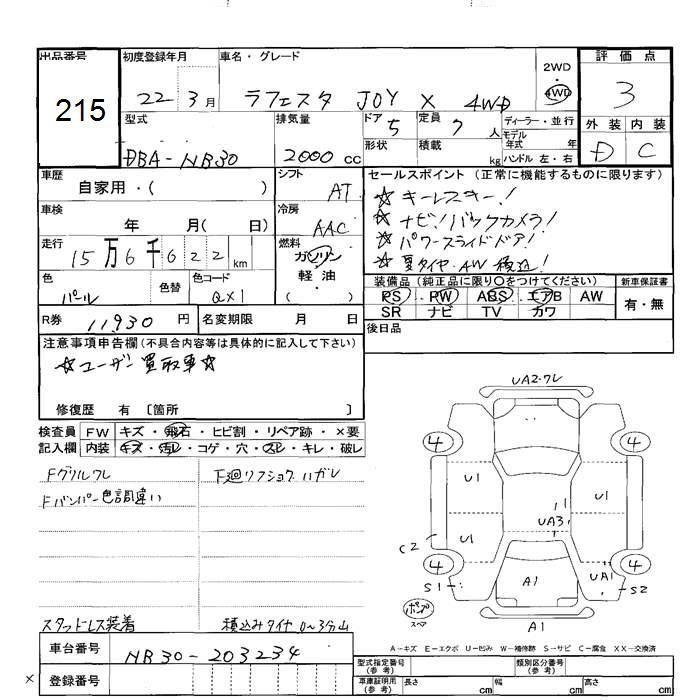 出品番号 初度登録年月 車名・グレード 評価点
215 22 3月 ラフェスタ JOY X 4WD 2WD 4WD 3
型式 排気量 ドア 5 定員 7 人 ディーラー・並行 外装 内装
DBA-NB30 2000 cc 形状 積載 kg モデル年式 年 ハンドル 左・右 D C
車歴 自家用・( ) シフト AT セールスポイント (正常に機能するものに限ります)
☆キーレスキー!
車検 年 月( 日) 冷房 AAC ☆ナビ!バックカメラ!
☆パワースライドドア!
走行 15万6千622km 燃料 ガソリン 軽・油 ( ) ☆夏タイヤ・AW積込!
色 パール 色替 色コード QX1 装備品 (純正品に限り〇をつけてください) 新車保証書
PS PW ABS エアB AW 有・無
SR ナビ TV カワ
R券 11,930 円 名変期限 月 日 後日品
注意事項申告欄 (不具合内容等は具体的に記入して下さい)
☆ユーザー買取車☆
修復歴 有 〔箇所 〕
検査員 FW キズ・飛石・ヒビ割・リペア跡・×要
記入欄 内装 キズ・汚レ・コゲ・穴・スレ・キレ・破レ
Fグリルワレ 下廻リフショクハガレ
Fバンパー色調違い
スタッドレス装着 積込みタイヤ0~3分山
UA2・ワレ
4 4
U1 U1
UA3
U1
C2
4 4
S1 A1 UA1 S2
パンク スペア
A1
A-キズ E-エクボ U-凹み W-補修跡 S-サビ C-腐食 XX-交換済
車台番号 NB30-203234 型式指定番号(参考) 類別区分番号(参考)
× 登録番号 車庫証明用(参考) 長さ cm 幅 cm 高さ cm